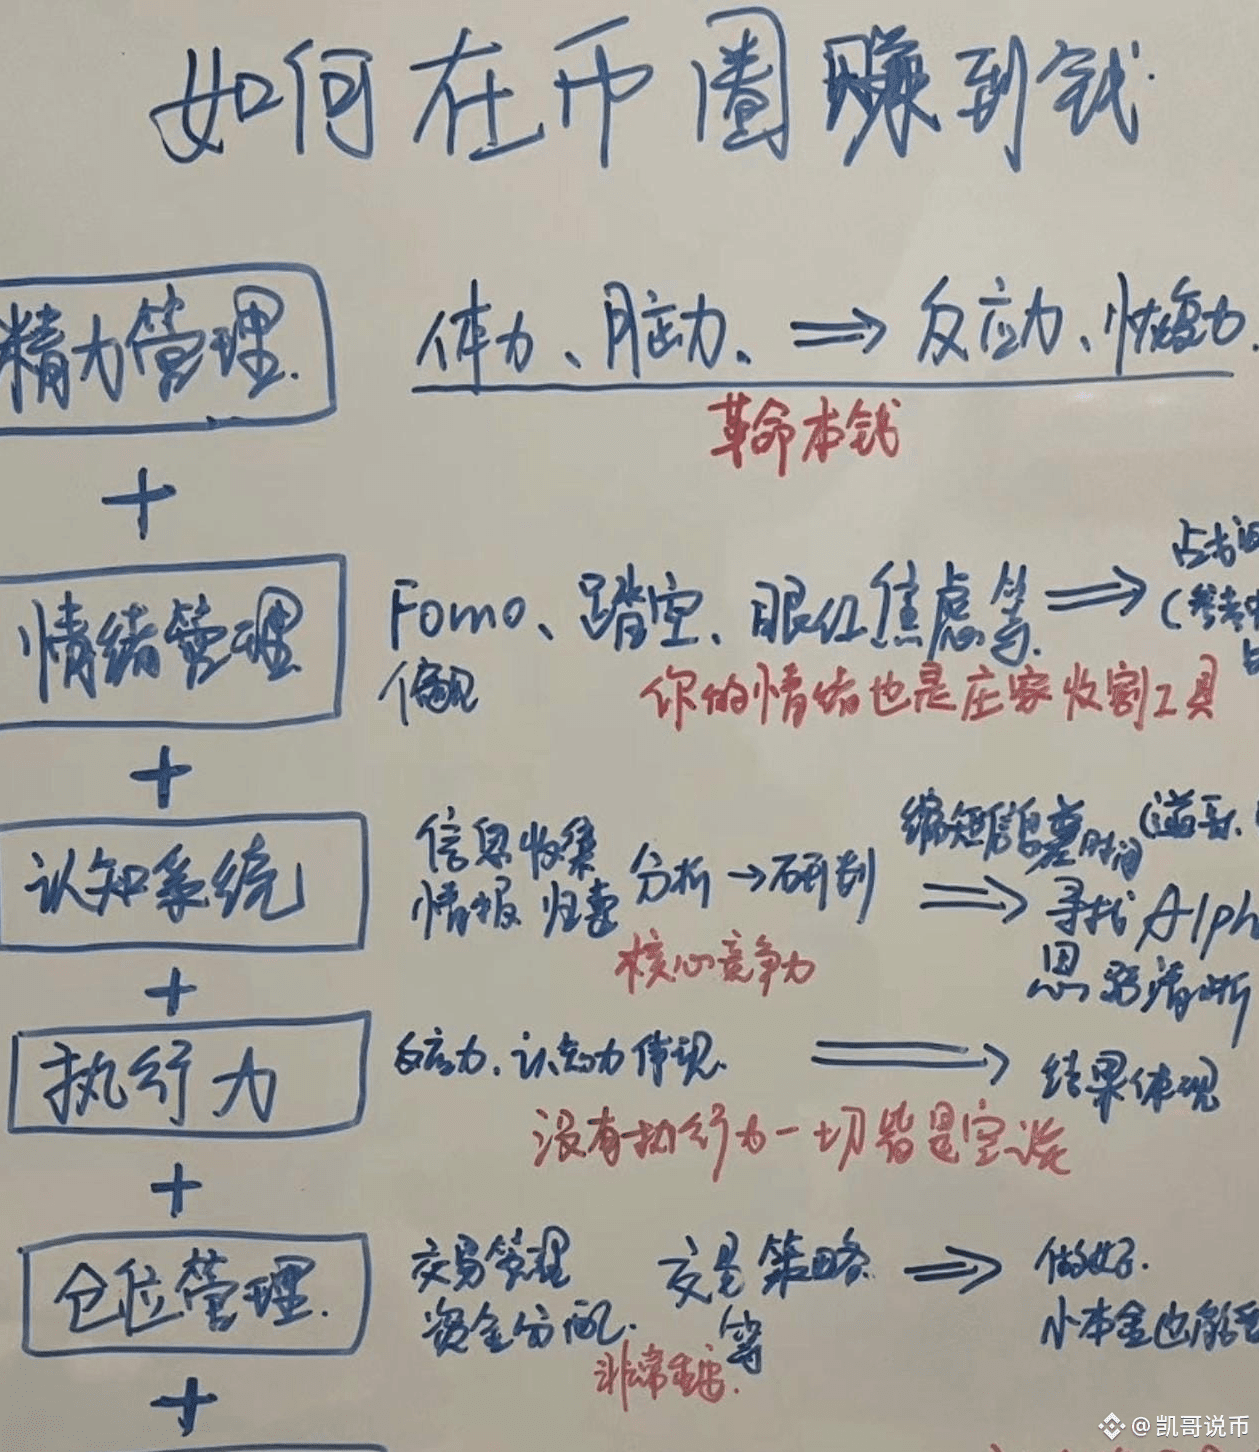 如何在币圈赚到钱.
精力管理.
体力、脑力、⇒ 反应力、恢复力.
革命本钱
+
情绪管理
Fomo、踏空、眼红焦虑等. ⇒
偏见
你的情绪也是庄家收割工具
+
认知系统
信息收集
情报 归类
分析 → 研判 ⇒
缩短信息差时间
寻找 Alph
思路清晰
核心竞争力
+
执行力
反应力、认知力体现. ⇒ 结果体现
没有执行力一切皆是空谈
+
仓位管理.
交易管理 交易策略 ⇒ 做好.
资金分配. 等 小本金也能
非常重要.
+
@凯哥说币